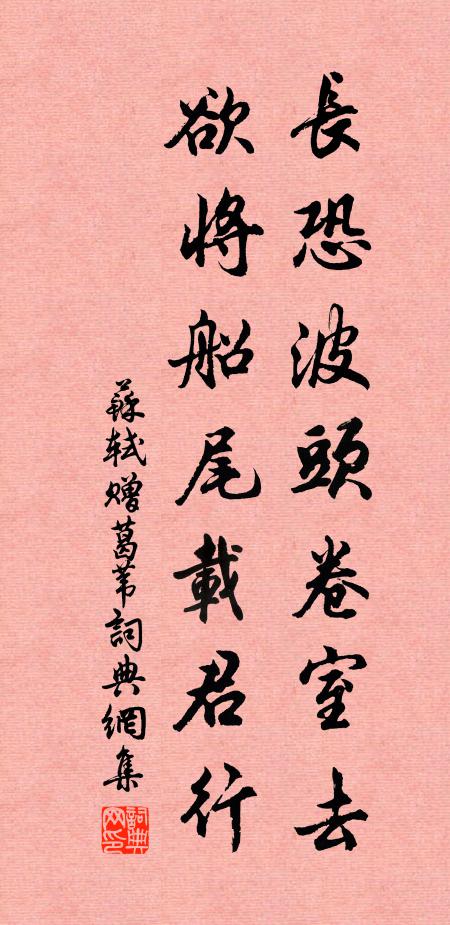 長恐波頭卷室去
欲將船尾載君行
蘇軾贈葛葦詞典網集
詞典网印